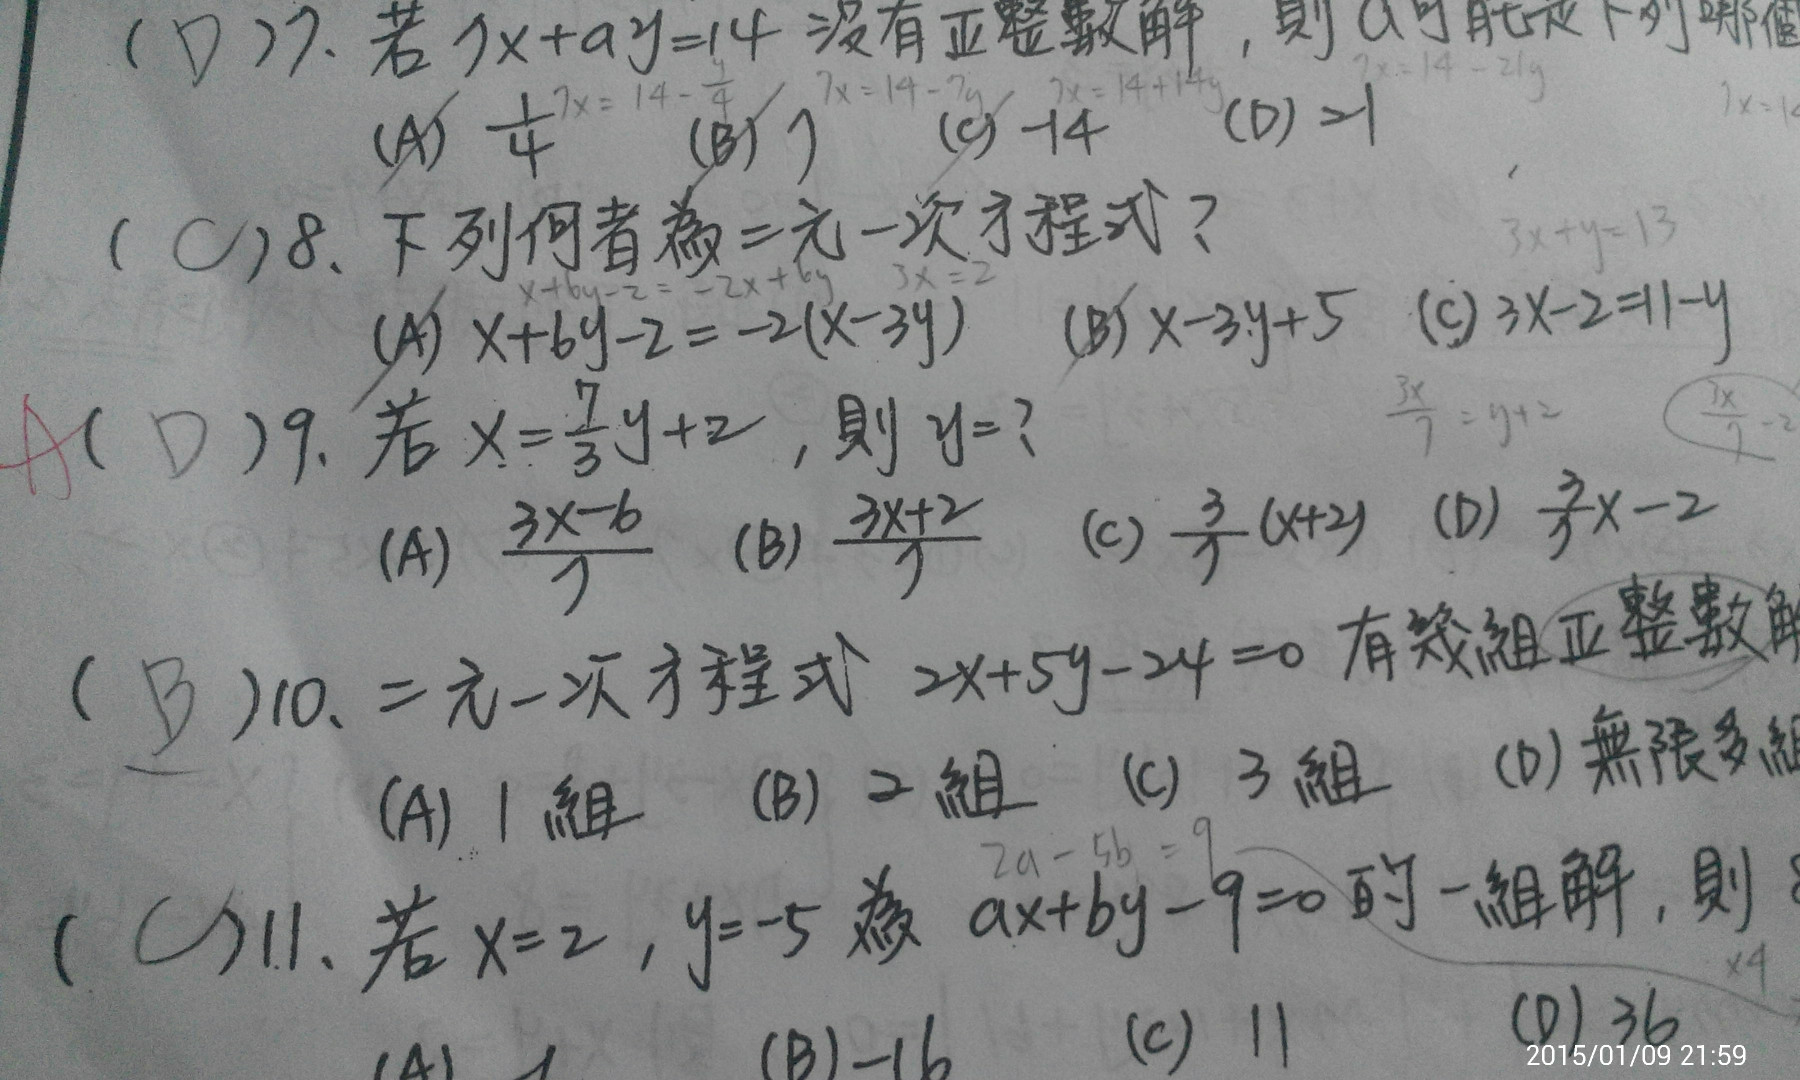 (D)7. 若 7x+ay=14 沒有正整數解，則 a可能是下列哪個
7x=14-y/4 7x=14-7y 7x=14+14y 7x=14-21y
(A) 1/4 (B) 7 (C) -14 (D) =1
(C)8、下列何者為二元一次方程式？ 3x+y=13
x+6y-2=-2x+6y 3x=2
(A) x+6y-2=-2(x-3y) (B) x-3y+5 (C) 3x-2=11-y
A(D)9. 若 x=7/3y+2，則 y=? 3x/7=y+2 3x/7-2
(A) 3x-6/7 (B) 3x+2/7 (C) 3/7(x+2) (D) 3/7x-2
(B)10、二元一次方程式 2x+5y-24=0 有幾組正整數解
(A) 1組 (B) 2組 (C) 3組 (D) 無限多組
2a-5b=9
(C)11、若 x=2，y=-5 為 ax+by-9=0 的一組解，則
x4
(A) (B) -16 (C) 11 (D) 36
2015/01/09 21:59